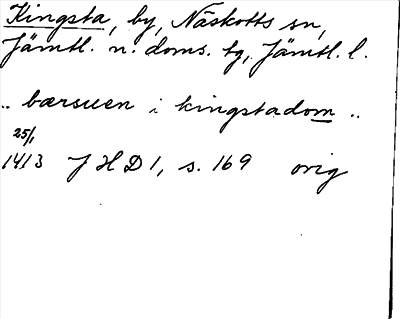 Kingsta, by, Näskotts sn,
Jämtl. n. doms. tg, Jämtl. l.
.. bærsuen i kingstadom ..
25/1
1413 J H D 1, s. 169 orig